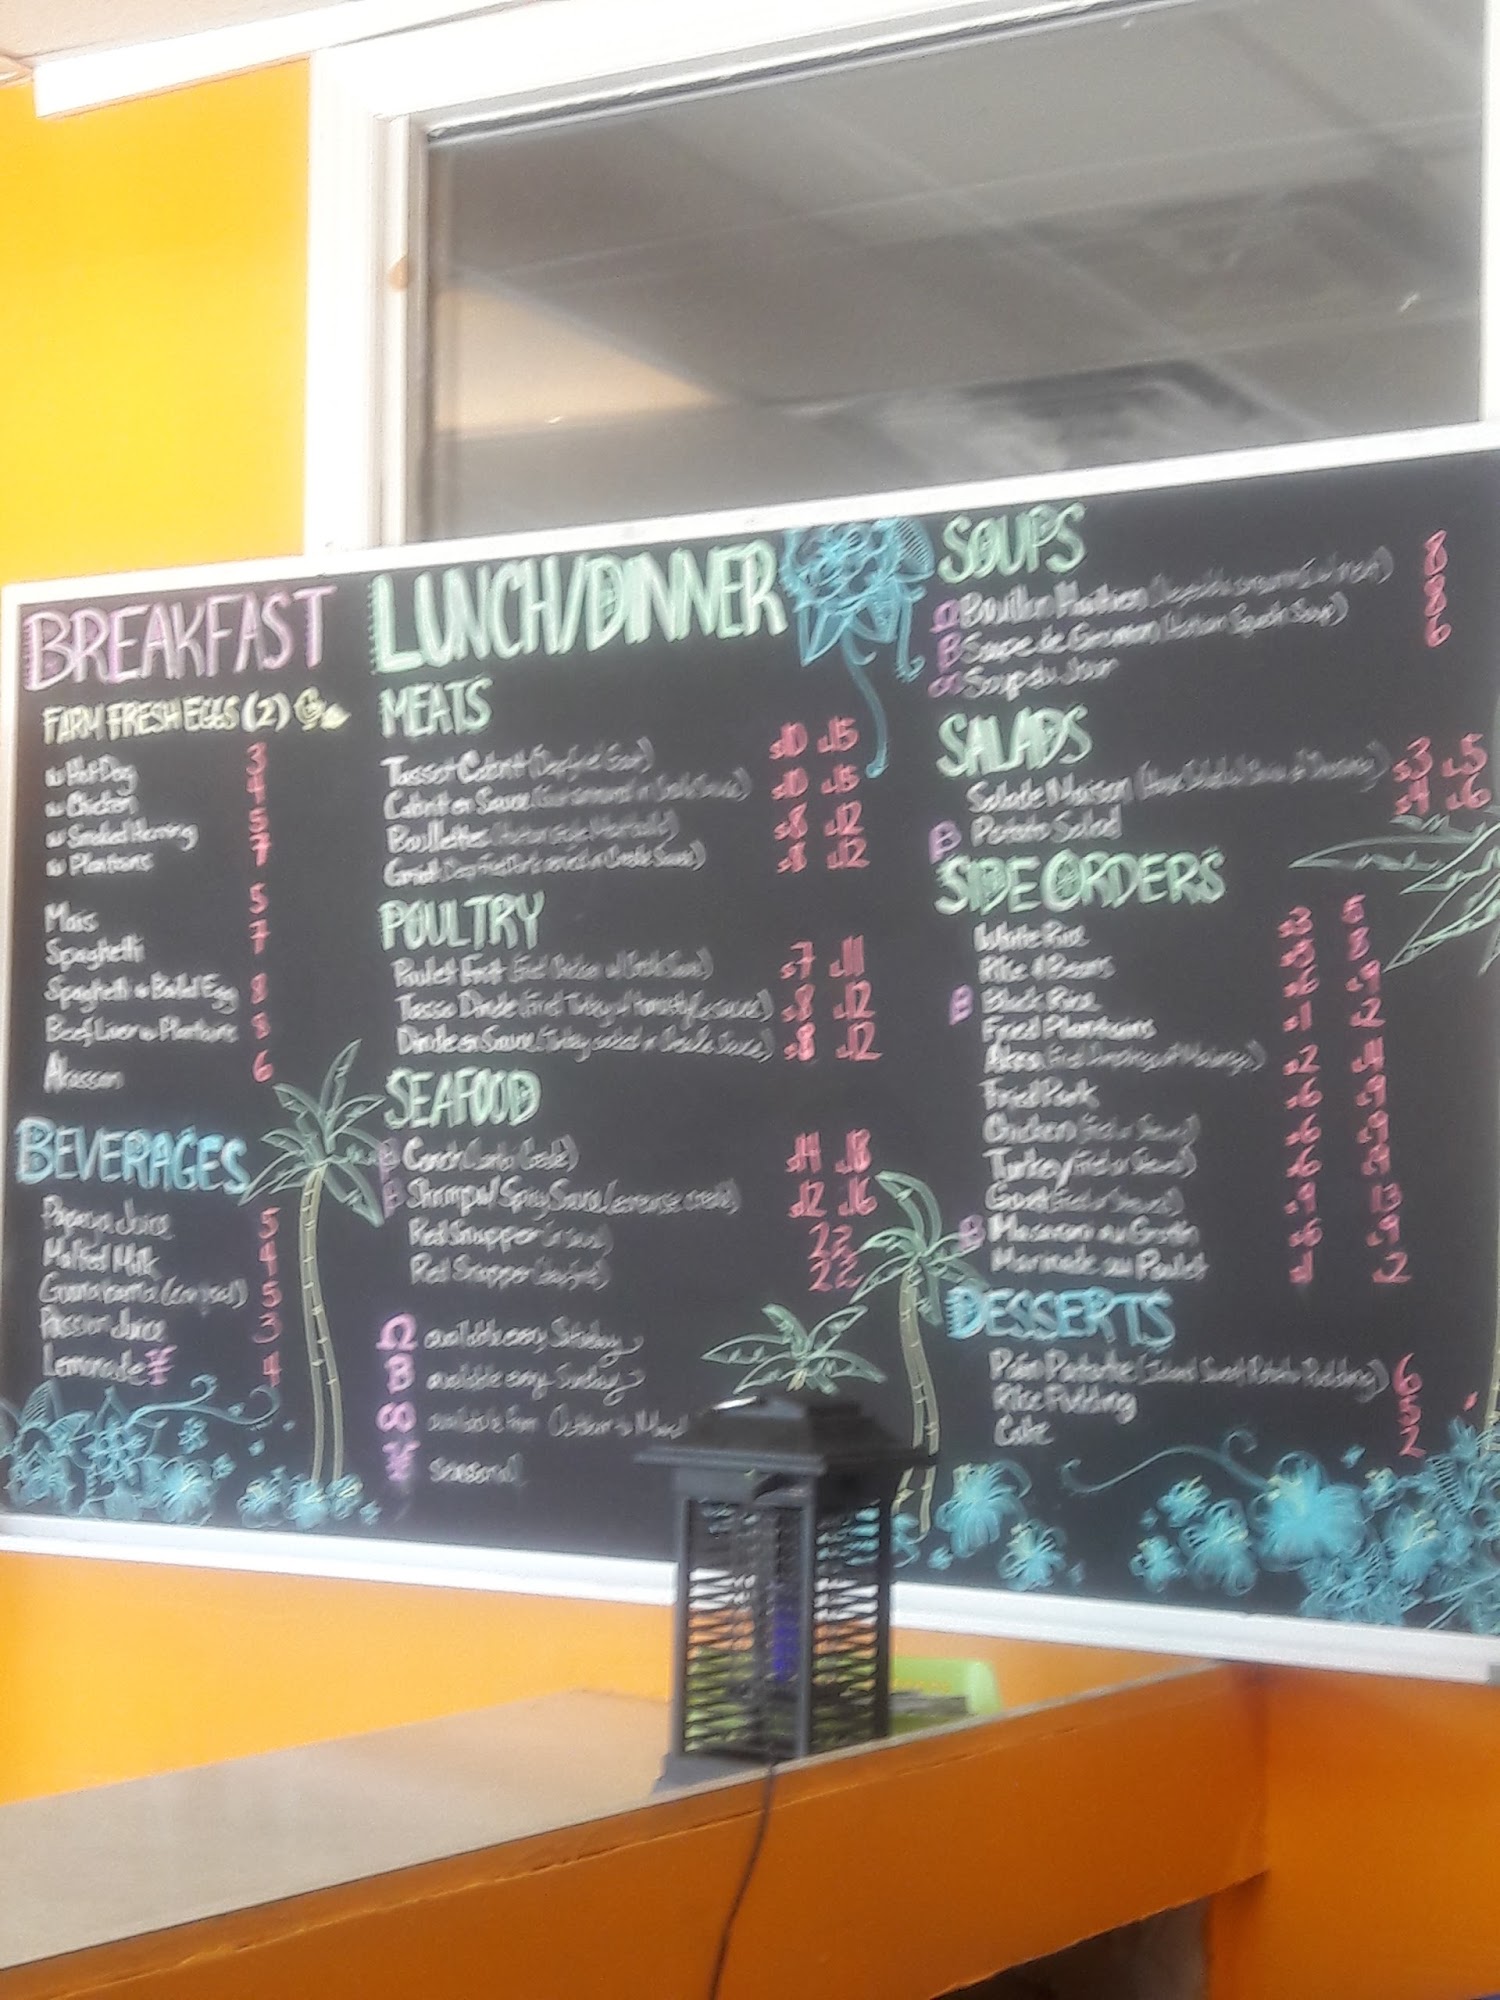 BREAKFAST
FARM FRESH EGGS (2)
w Hot Dog 3
w Chicken 4
w Smoked Herring 5
w Plantains 7
Mais 5
Spaghetti 7
Spaghetti w Boiled Egg 8
Beef Liver w Plantains 8
Akassan 6
BEVERAGES
Papaya Juice 5
Malted Milk 4
Guanabana (soursop) 5
Passion Juice 3
Lemonade 4
LUNCH/DINNER
MEATS
Tassot Cabrit (Deep fried Goat) s10 L15
Cabrit en Sauce (Goat simmered in Creole Sauce) s10 L15
Boullettes (Haitian style Meatballs) s8 L12
Griot (Deep Fried Pork served w Creole Sauce) s8 L12
POULTRY
Poulet Frit (Fried Chicken w/ Creole Sauce) s7 L11
Tasso Dinde (Fried Turkey w/ sauce) s8 L12
Dinde en Sauce (Turkey cooked in Creole Sauce) s8 L12
SEAFOOD
B Conch (Lambi Creole) s14 L18
B Shrimp w/ Spicy Sauce (crevette creole) s12 L16
Red Snapper (in sauce) 22
Red Snapper (deep fried) 22
Ω available every Saturday
B available every Sunday
∞ available from October to March
seasonal
SOUPS
Ω Bouillon Haitien (Vegetables simmered w/ meat) 8
B Soupe de Giraumon (Haitian Squash Soup) 8
∞ Soup du Jour 6
SALADS
Salade Maison (House Salad w/ Dressing) s3 L5
B Potato Salad s4 L6
SIDE ORDERS
White Rice s3 5
Rice & Beans s3 8
B Black Rice s6 L9
Fried Plantains s1 L2
Akra (Fried Dumplings of Malanga) s2 L4
Fried Pork s6 L9
Chicken (Fried or Stewed) s6 L9
Turkey (Fried or Stewed) s6 L9
Goat (Fried or Stewed) s9 13
B Macaroni au Gratin s6 L9
Marinade au Poulet s1 L2
DESSERTS
Pain Patate (Island Sweet Potato Pudding) 6
Rice Pudding 5
Cake 2